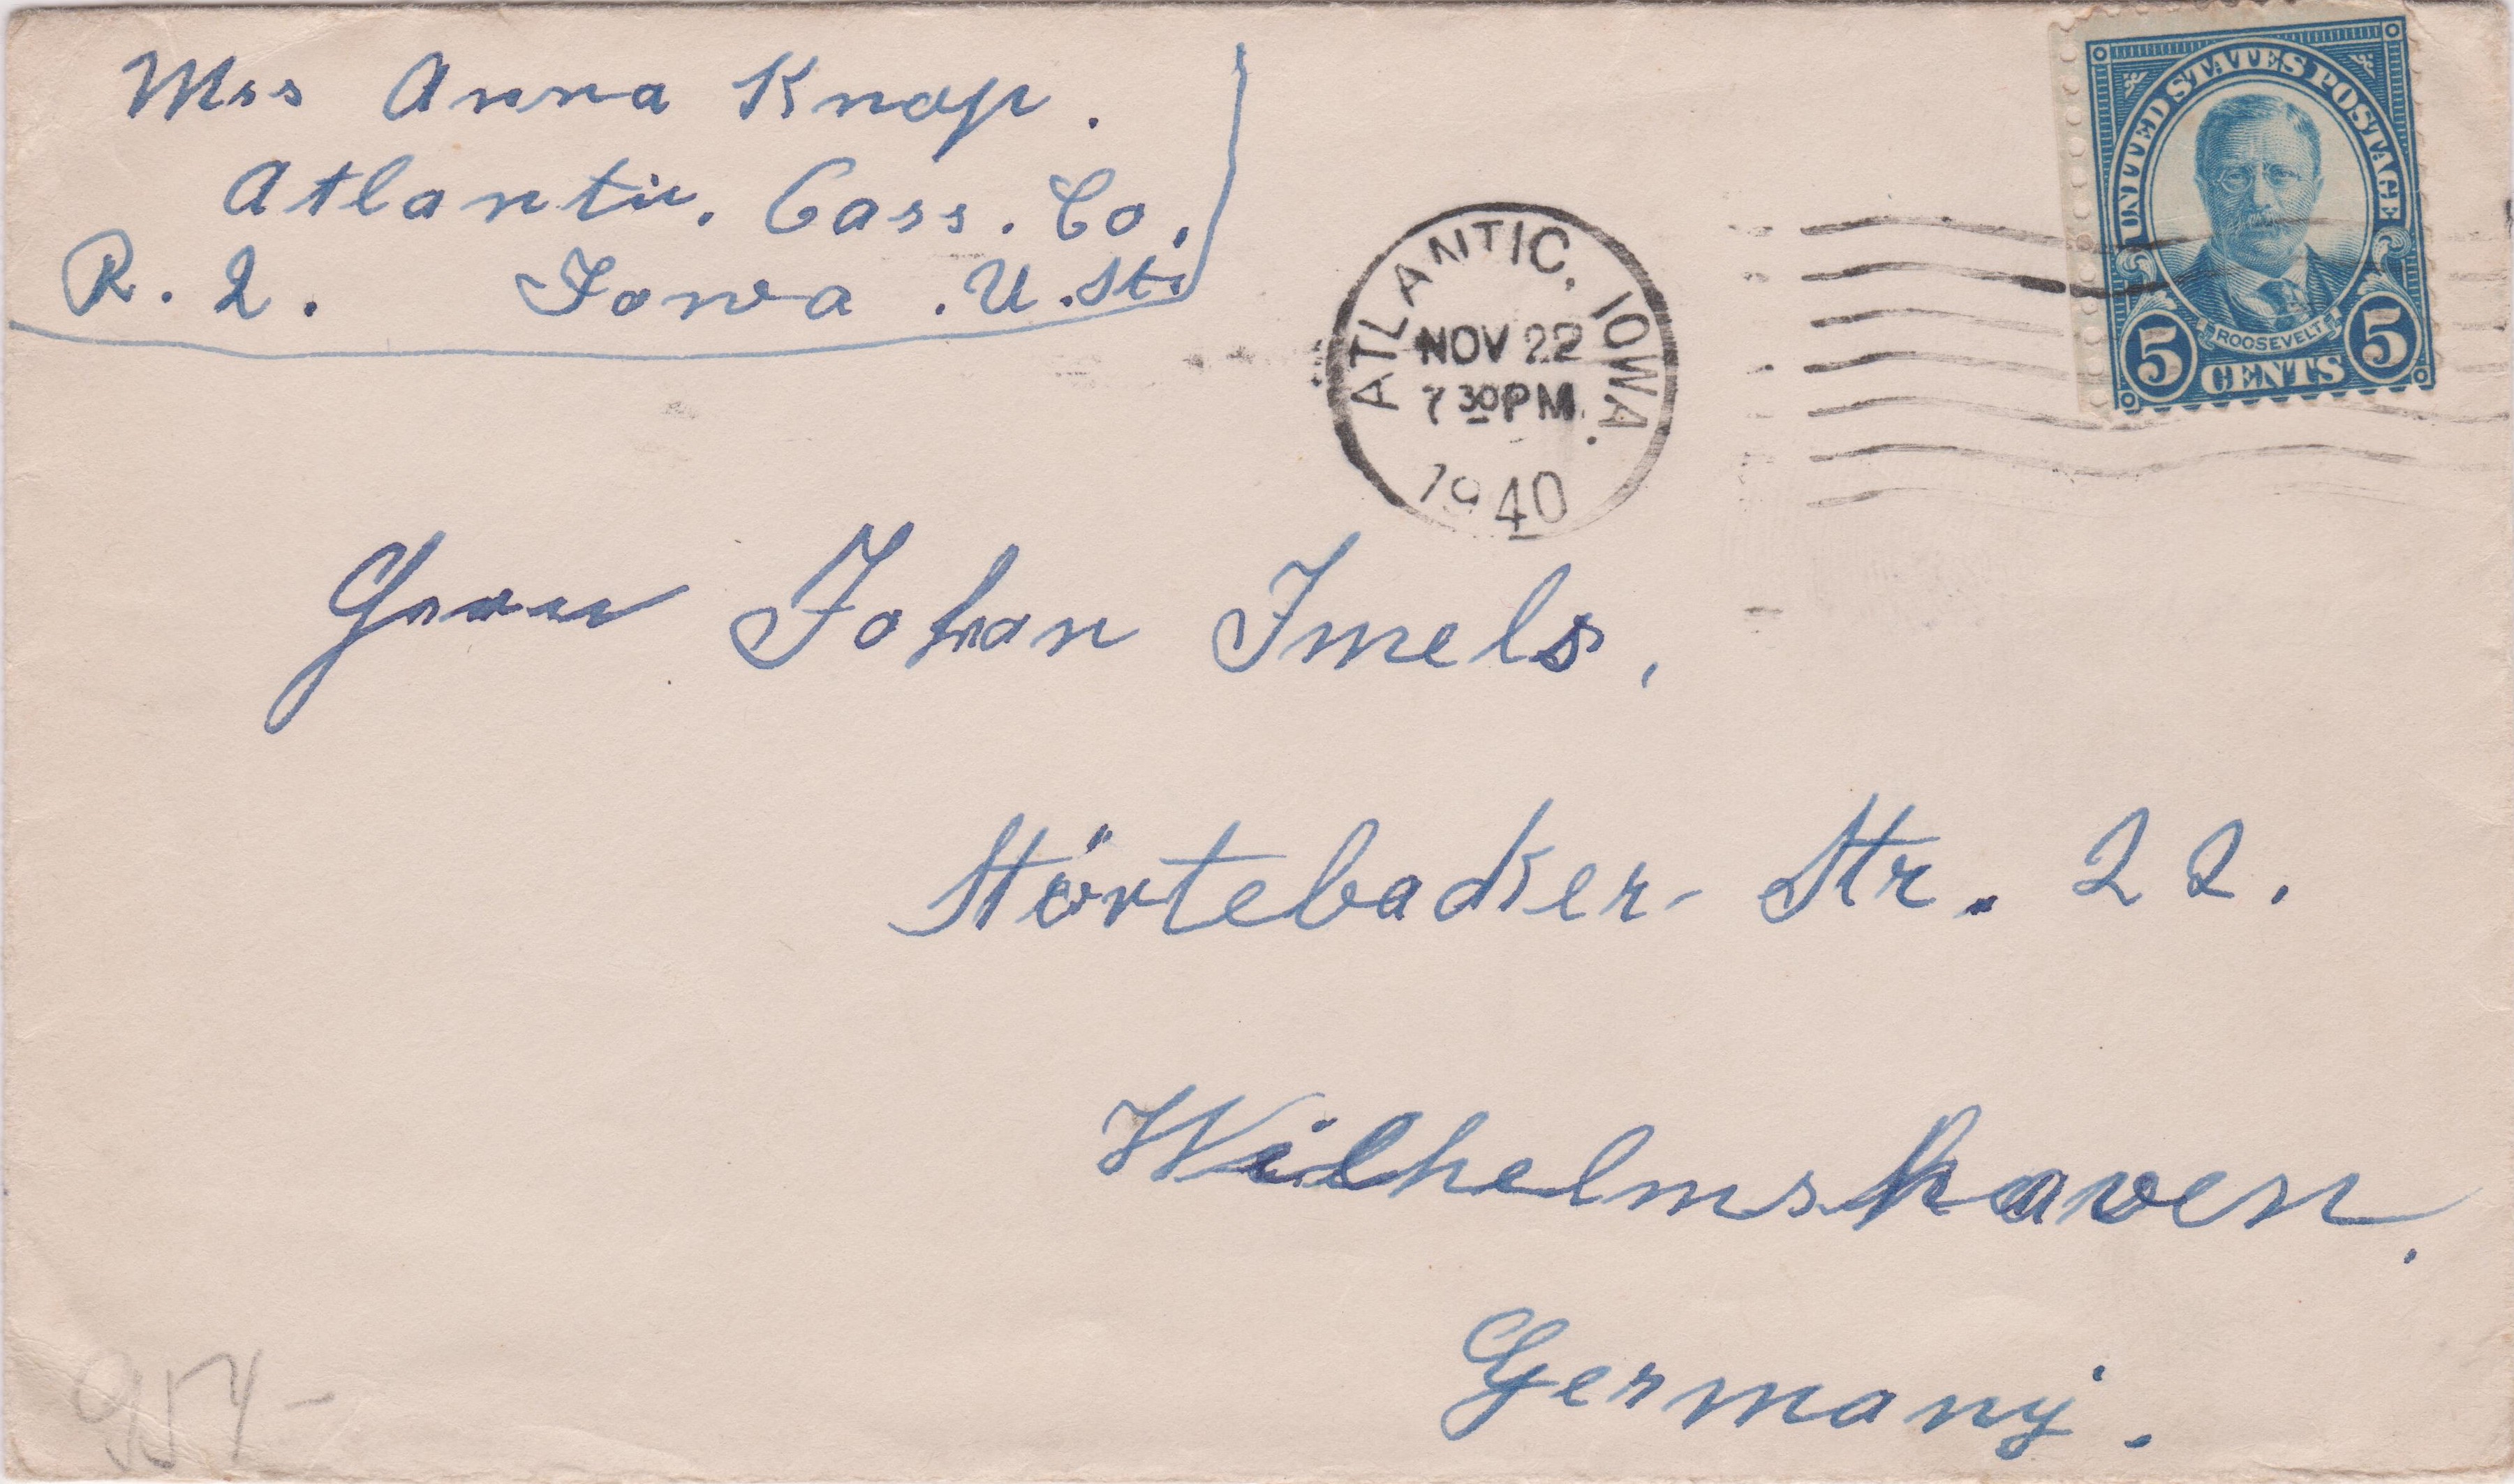 Mrs Anna Knop.
Atlantic. Cass. Co.
R. 2. Iowa. U. St.
UNITED STATES POSTAGE
ROOSEVELT
5 CENTS 5
ATLANTIC, IOWA.
NOV 22
7 30 PM
1940
Frau Johan Imels,
Störtebadker Str. 22.
Wilhelmshaven.
Germany.